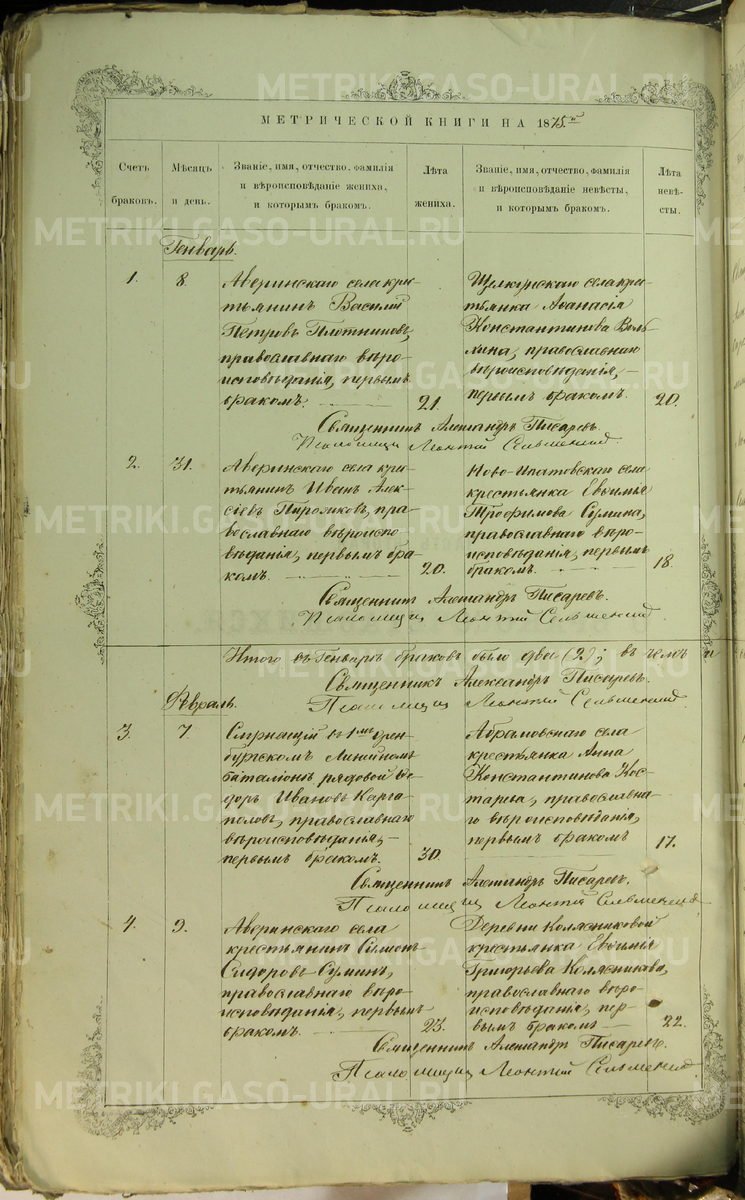 МЕТРИЧЕСКОЙ КНИГИ НА 1875.й
Счетъ браковъ.
Мѣсяцъ и день.
Званіе, имя, отчество, фамилія
и вѣроисповѣданіе жениха,
и которымъ бракомъ.
Лѣта
жениха.
Званіе, имя, отчество, фамилія
и вѣроисповѣданіе невѣсты,
и которымъ бракомъ.
Лѣта
невѣ-
сты.
Генварь.
1.
8.
Аверинскаго села кре-
стьянинъ Василій
Петровъ Плотниковъ,
православнаго вѣро-
исповѣданія, первымъ
бракомъ.
21.
Щелкунскаго села кре-
стьянка Аѳанасія
Константинова
православнаго
вѣроисповѣданія,
первымъ бракомъ.
20.
Священникъ Александръ Писаревъ.
Псаломщикъ Леонтій Сельменскій.
2.
31.
Аверинскаго села кре-
стьянинъ Иванъ Алек-
сѣевъ пра-
вославнаго вѣроиспо-
вѣданія, первымъ бра-
комъ.
20.
Ново-Ипатовскаго села
крестьянка Евѳимья
Трофимова Сумина,
православнаго вѣро-
исповѣданія, первымъ
бракомъ.
18.
Священникъ Александръ Писаревъ.
Псаломщикъ Леонтій Сельменскій.
Итого въ Генварѣ браковъ было два (2); въ чемъ и
Священникъ Александръ Писаревъ.
Псаломщикъ Леонтій Сельменскій.
Февраль.
3.
7.
Служащій въ 1мъ Орен-
бургскомъ Линейномъ
баталіонѣ рядовой Ѳе-
доръ Ивановъ Карга-
половъ, православнаго
вѣроисповѣданія,
первымъ бракомъ.
30.
Абрамовскаго села
крестьянка Анна
Константинова Кос-
тарева, православна-
го вѣроисповѣданія,
первымъ бракомъ
17.
Священникъ Александръ Писаревъ.
Псаломщикъ Леонтій Сельменскій.
4.
9.
Аверинскаго села
крестьянинъ Симеонъ
Сидоровъ Суминъ,
православнаго вѣро-
исповѣданія, первымъ
бракомъ.
23.
Деревни Колясниковой
крестьянка Евѳимія
Григорьева Колясникова,
православнаго вѣро-
исповѣданія, пер-
вымъ бракомъ
22.
Священникъ Александръ Писаревъ.
Псаломщикъ Леонтій Сельменскій.
METRIKI.GASO-URAL.RU